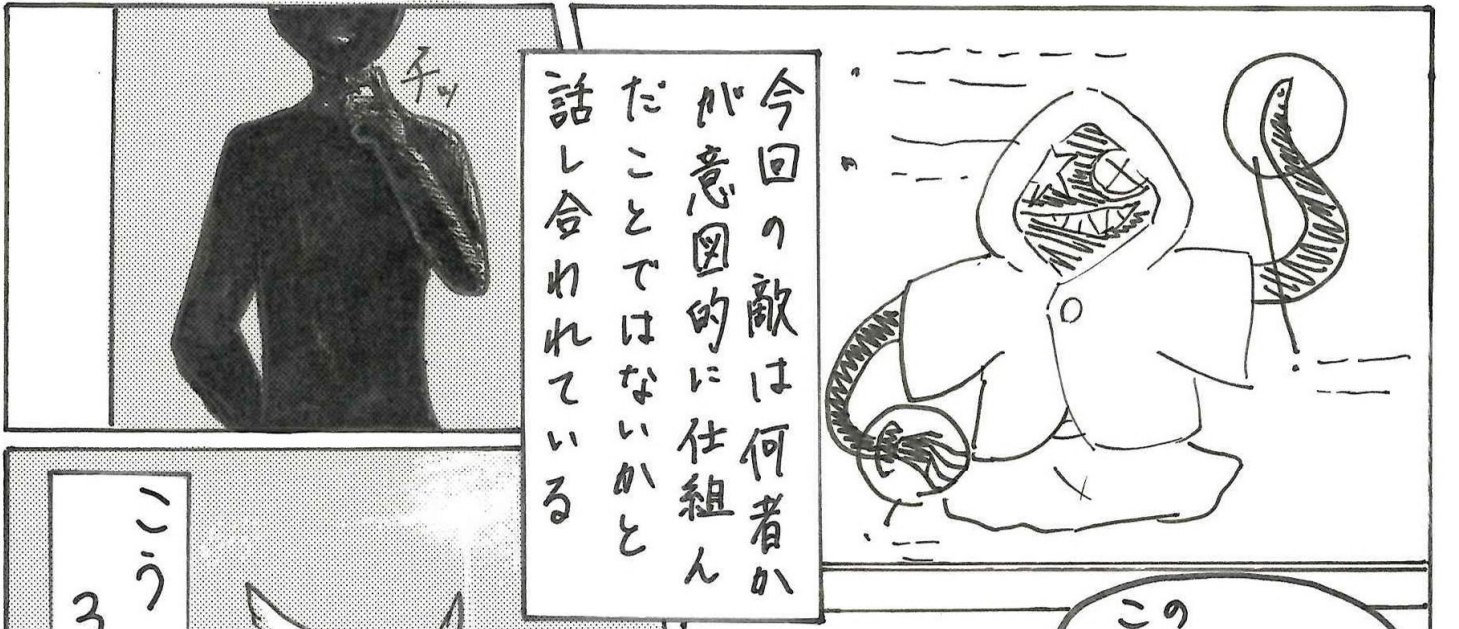 今回の敵は何者か
が意図的に仕組ん
だことではないかと
話し合われている
チッ
この
こう
ろ